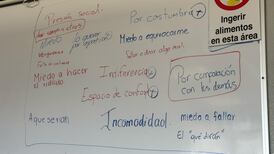 Presión social
Por costumbre +
Miedo
lo quieren por
Miedo a equivocarme
Vergüenza
Miedo a hacer
el ridículo
Indiferencia +
Por comparación
con los demás
Espacio de confort +
Aque se rían
Incomodidad
miedo a fallar
El "qué dirán"
Ingerir
alimentos
en esta área